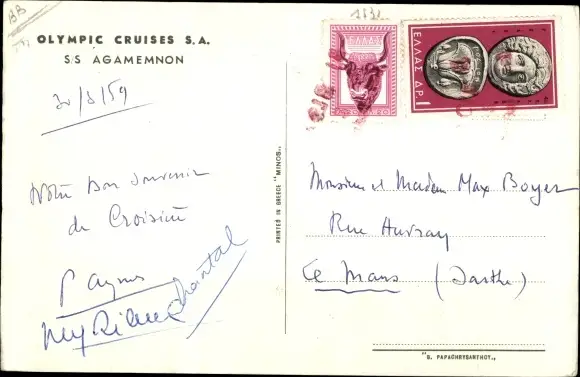 BB
OLYMPIC CRUISES S.A.
S/S AGAMEMNON
20/8/59
Notre bon souvenir
de Croisière
Chantal
PRINTED IN GREECE "MINOS„
ΕΛΛΑΣ ΔΡ. 1
Monsieur et Madame Max Boyer
Rue
Le Mans (Sarthe)
"G. PAPACHRYSANTHOY„